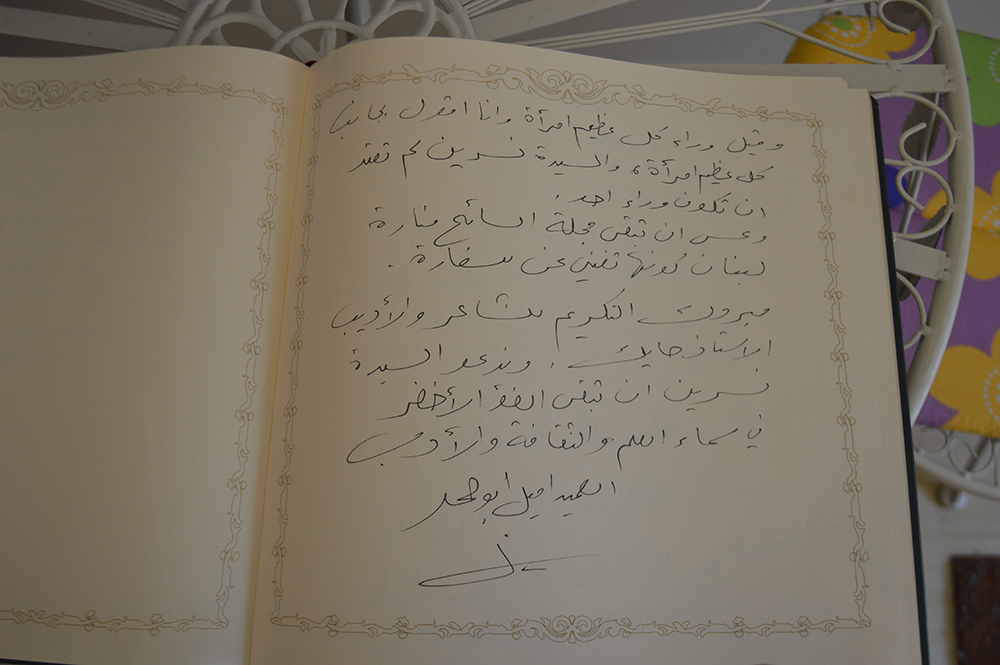 وقيل وراء كل عظيم امرأة وانا اقول بجانب
كل عظيم امرأة، والسيدة نسرين لم تعتد
ان تكون وراء احد.
وعسى ان تبقى مجلة السائح منارة
لبنان كونها تغني عن سفارة.
مبروك التكريم للشاعر والأديب
الاستاذ حايك! وندعو السيدة
نسرين ان تبقى الضؤ الأخضر
في سماء العلم والثقافة والأدب
العميد اميل ابو